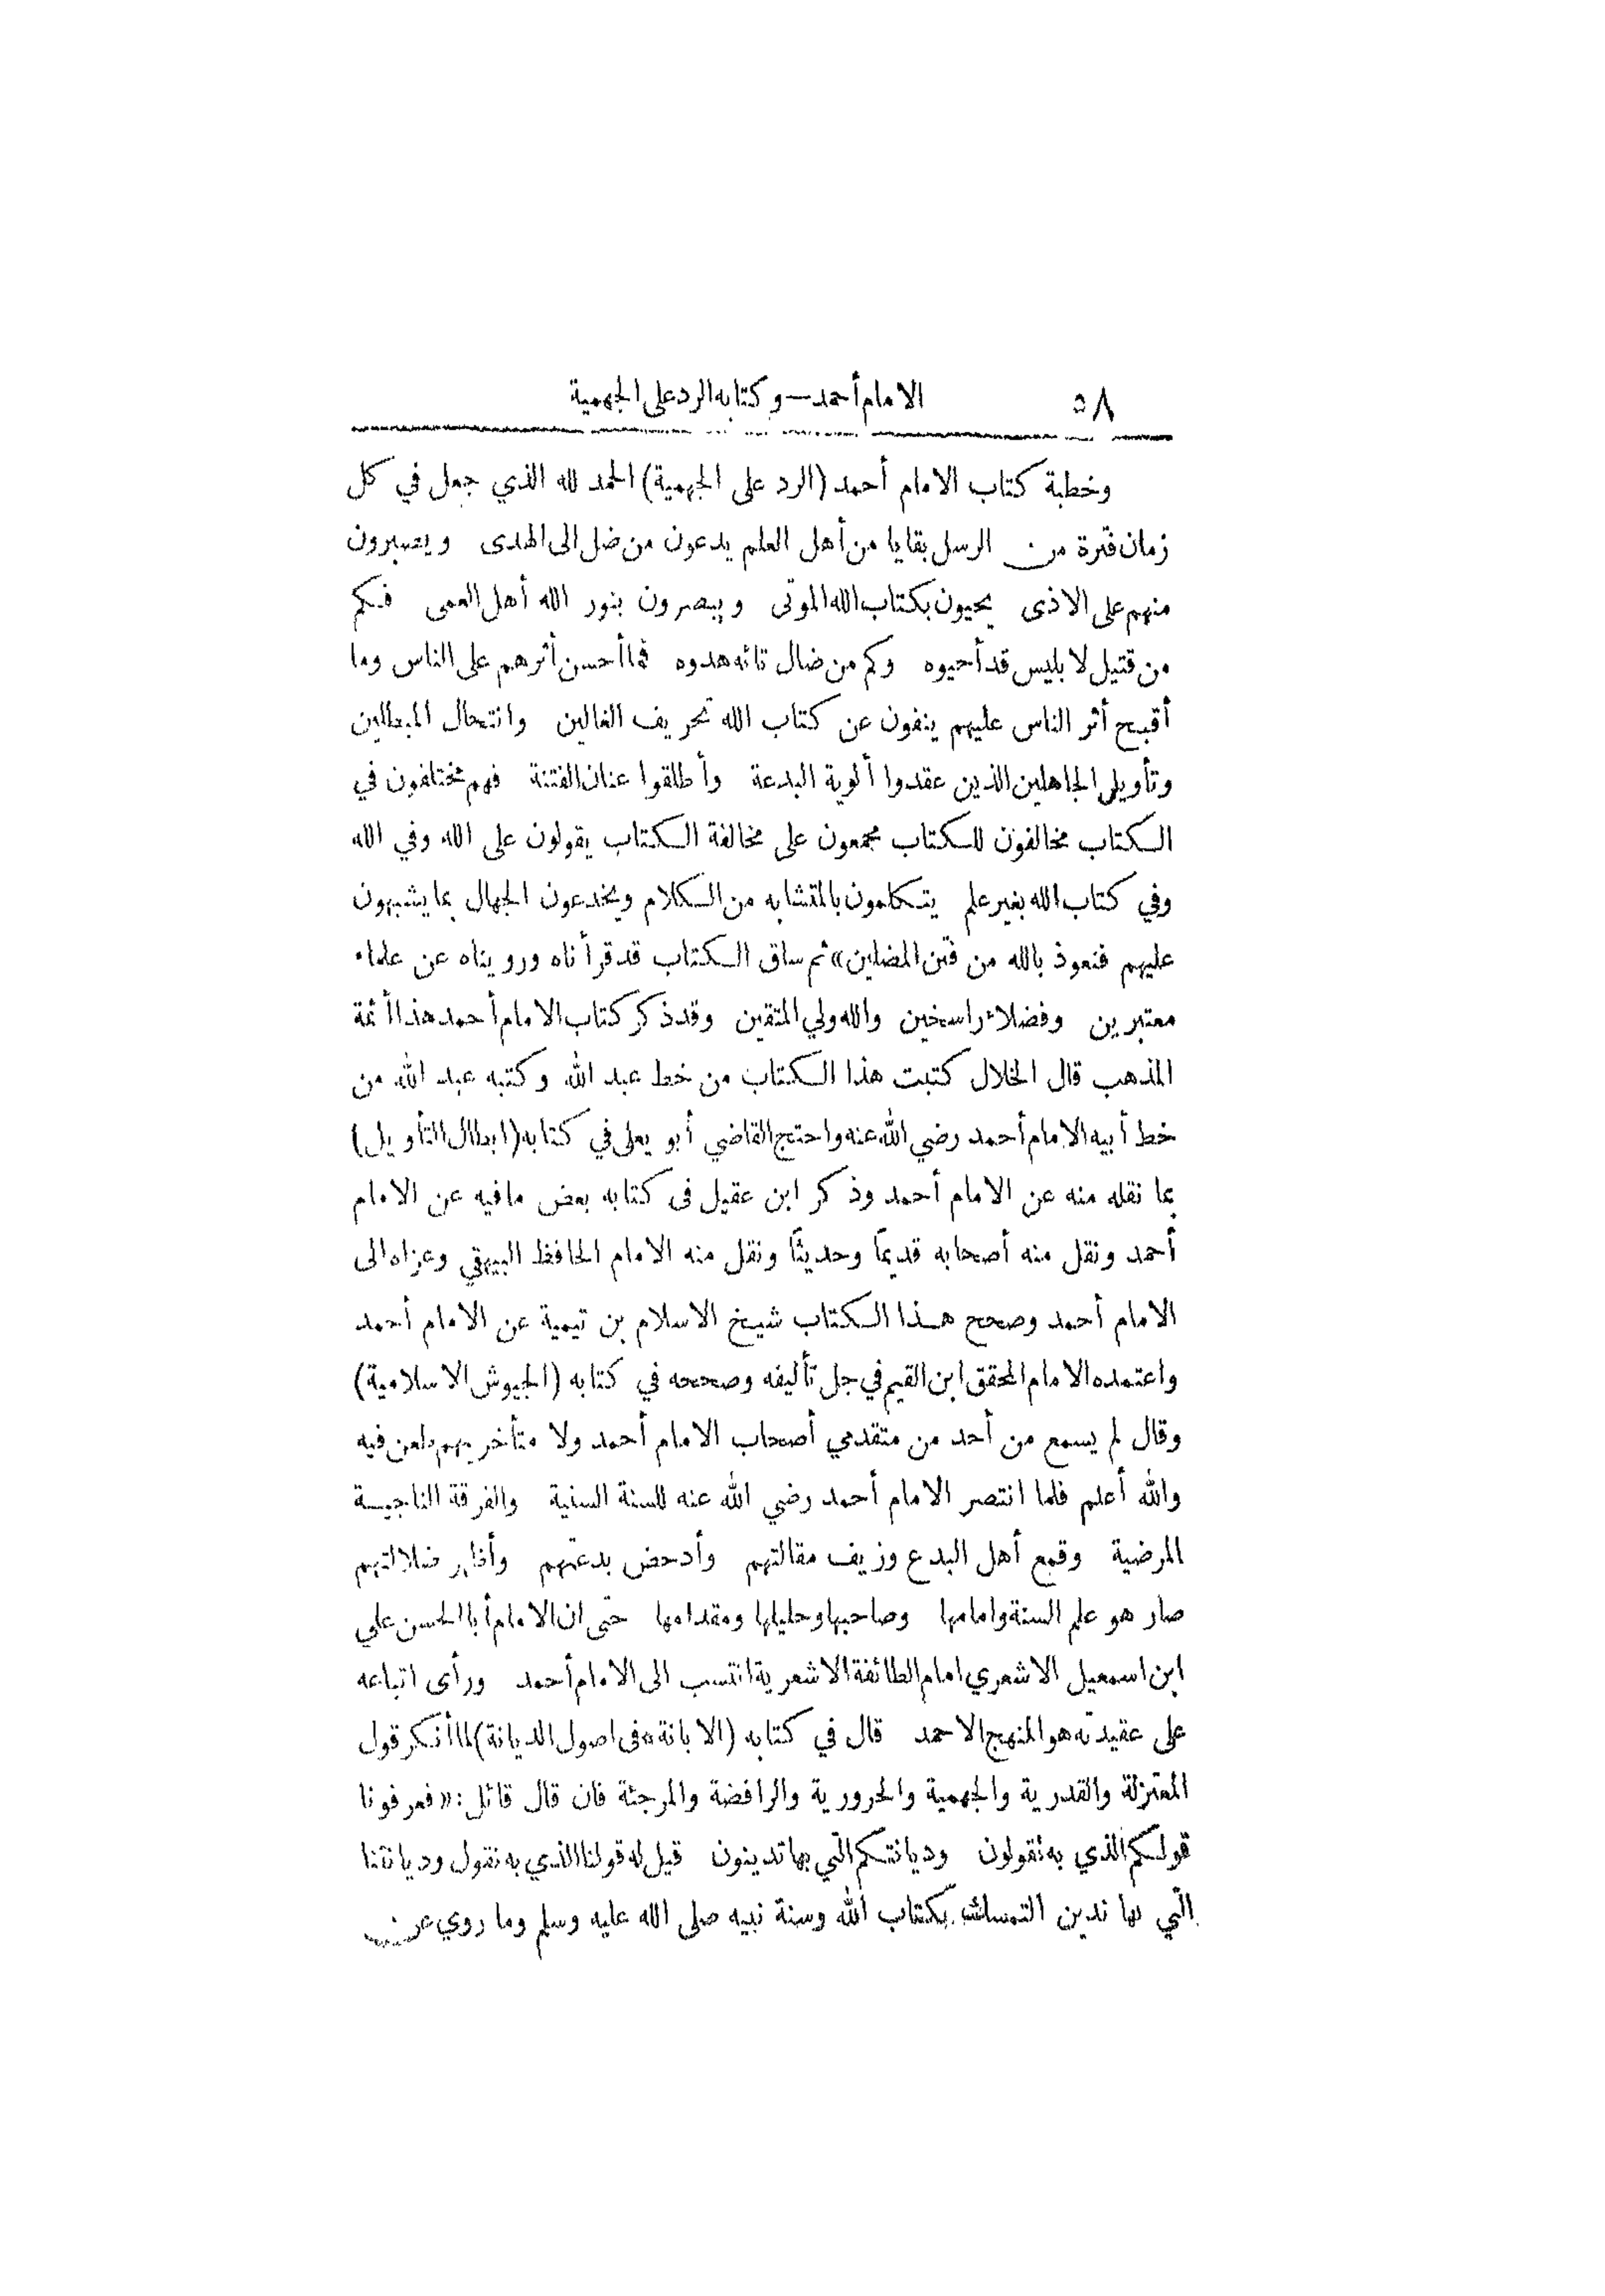 ٥٨ الامام أحمد — وكتابه الرد على الجهمية
وخطبة كتاب الامام أحمد (الرد على الجهمية) الحمد لله الذي جعل في كل
زمان فترة من الرسل بقايا من أهل العلم يدعون من ضل الى الهدى ويصبرون
منهم على الاذى يحيون بكتاب الله الموتى ويبصرون بنور الله أهل العمى فكم
من قتيل لابليس قد أحيوه وكم من ضال تائه هدوه فما أحسن أثرهم على الناس وما
أقبح أثر الناس عليهم ينفون عن كتاب الله تحريف الغالين وانتحال المبطلين
وتأويل الجاهلين الذين عقدوا ألوية البدعة وأطلقوا عنان الفتنة فهم مختلفون في
الكتاب مخالفون للكتاب مجمعون على مخالفة الكتاب يقولون على الله وفي الله
وفي كتاب الله بغير علم يتكلمون بالمتشابه من الكلام ويخدعون الجهال بما يشبهون
عليهم فنعوذ بالله من فتن المضلين» ثم ساق الكتاب قد قرأناه ورويناه عن علماء
معتبرين وفضلاء راسخين والله ولي المتقين وقد ذكر كتاب الامام أحمد هذا أئمة
المذهب قال الخلال كتبت هذا الكتاب من خط عبد الله وكتبه عبد الله من
خط أبيه الامام أحمد رضي الله عنه واحتج القاضي أبو يعلى في كتابه (ابطال التأويل)
بما نقله منه عن الامام أحمد وذكر ابن عقيل فى كتابه بعض مافيه عن الامام
أحمد ونقل منه أصحابه قديمًا وحديثًا ونقل منه الامام الحافظ البيهقي وعزاه الى
الامام أحمد وصحح هذا الكتاب شيخ الاسلام بن تيمية عن الامام أحمد
واعتمده الامام المحقق ابن القيم في جل تأليفه وصححه في كتابه (الجيوش الاسلامية)
وقال لم يسمع من أحد من متقدمي أصحاب الامام أحمد ولا متأخريهم طعن فيه
والله أعلم فلما انتصر الامام أحمد رضي الله عنه للسنة السنية والفرقة الناجية
المرضية وقمع أهل البدع وزيف مقالتهم وأدحض بدعتهم وأظهر ضلالتهم
صار هو علم السنة وامامها وصاحبها وحليلها ومقدامها حتى ان الامام أبا الحسن علي
ابن اسمعيل الاشعري امام الطائفة الاشعرية انتسب الى الامام أحمد ورأى اتباعه
على عقيدته هو المنهج الاحمد قال في كتابه (الابانة * فى اصول الديانة) لما أنكر قول
المعتزلة والقدرية والجهمية والحرورية والرافضة والمرجئة فان قال قائل: «فعرفونا
قولكم الذي به تقولون وديانتكم التي بها تدينون قيل له قولنا الذي به نقول وديانتنا
التي بها ندين التمسك بكتاب الله وسنة نبيه صلى الله عليه وسلم وما روي عن